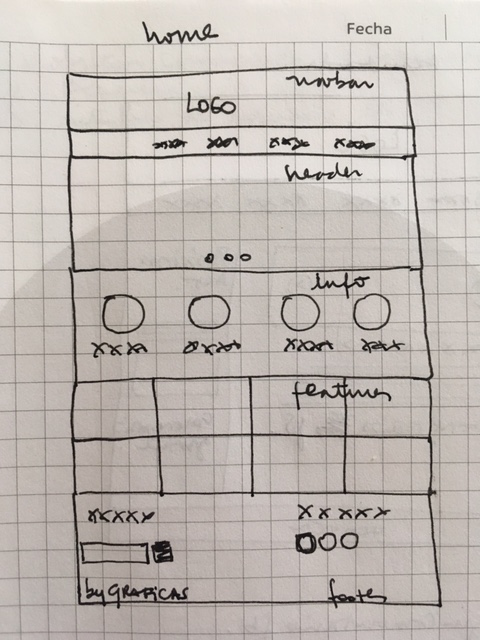 home
Fecha
navbar
LOGO
xxxx xxx xxxx xxxx
header
info
xxxx xxxx xxxx xxxx
features
xxxxx xxxxx
by GRAFICAS
footer